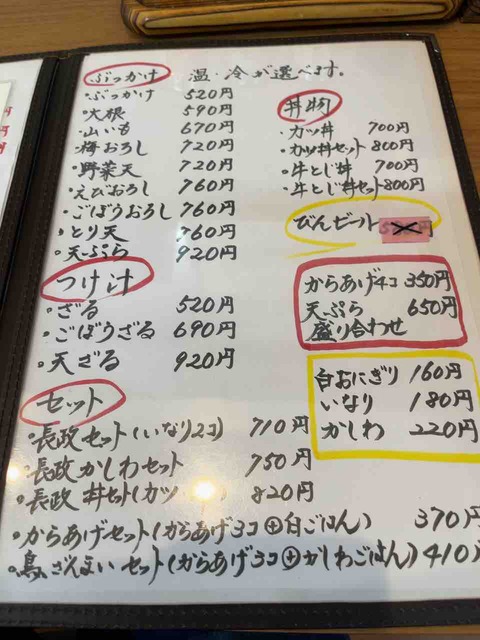 ぶっかけ 温・冷が選べます。
・ぶっかけ 520円
・大根 590円
・山いも 670円
・梅おろし 720円
・野菜天 720円
・えびおろし 760円
・ごぼうおろし 760円
・とり天 760円
・天ぷら 920円
つけ汁
・ざる 520円
・ごぼうざる 690円
・天ざる 920円
セット
・長政セット(いなり2コ) 710円
・長政かしわセット 750円
・長政丼セット(カツ 820円
・からあげセット(からあげ3コ⊕白ごはん) 370円
・鳥ざんまいセット(からあげ3コ⊕かしわごはん) 410円
丼物
・カツ丼 700円
・カツ丼セット 800円
・牛とじ丼 700円
・牛とじ丼セット 800円
びんビール
からあげ4コ 350円
天ぷら 650円
盛り合わせ
白おにぎり 160円
いなり 180円
かしわ 220円